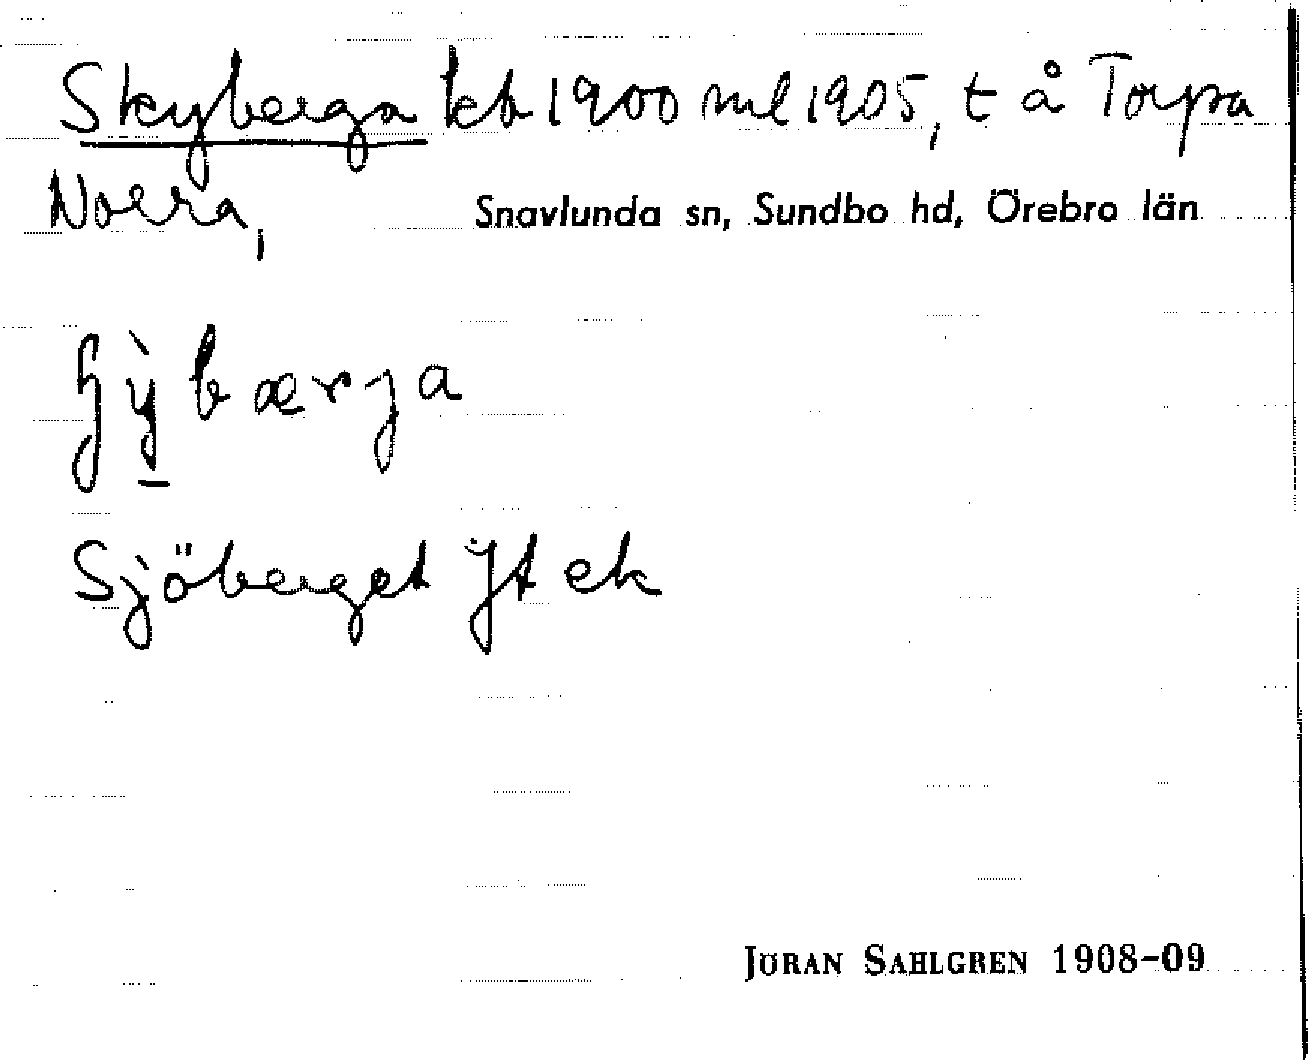 Skyberga kb 1900 ml 1905, t å Torpa
Norra, Snavlunda sn, Sundbo hd, Örebro län
Sjöberget Jt ek
JÖRAN SAHLGREN 1908-09